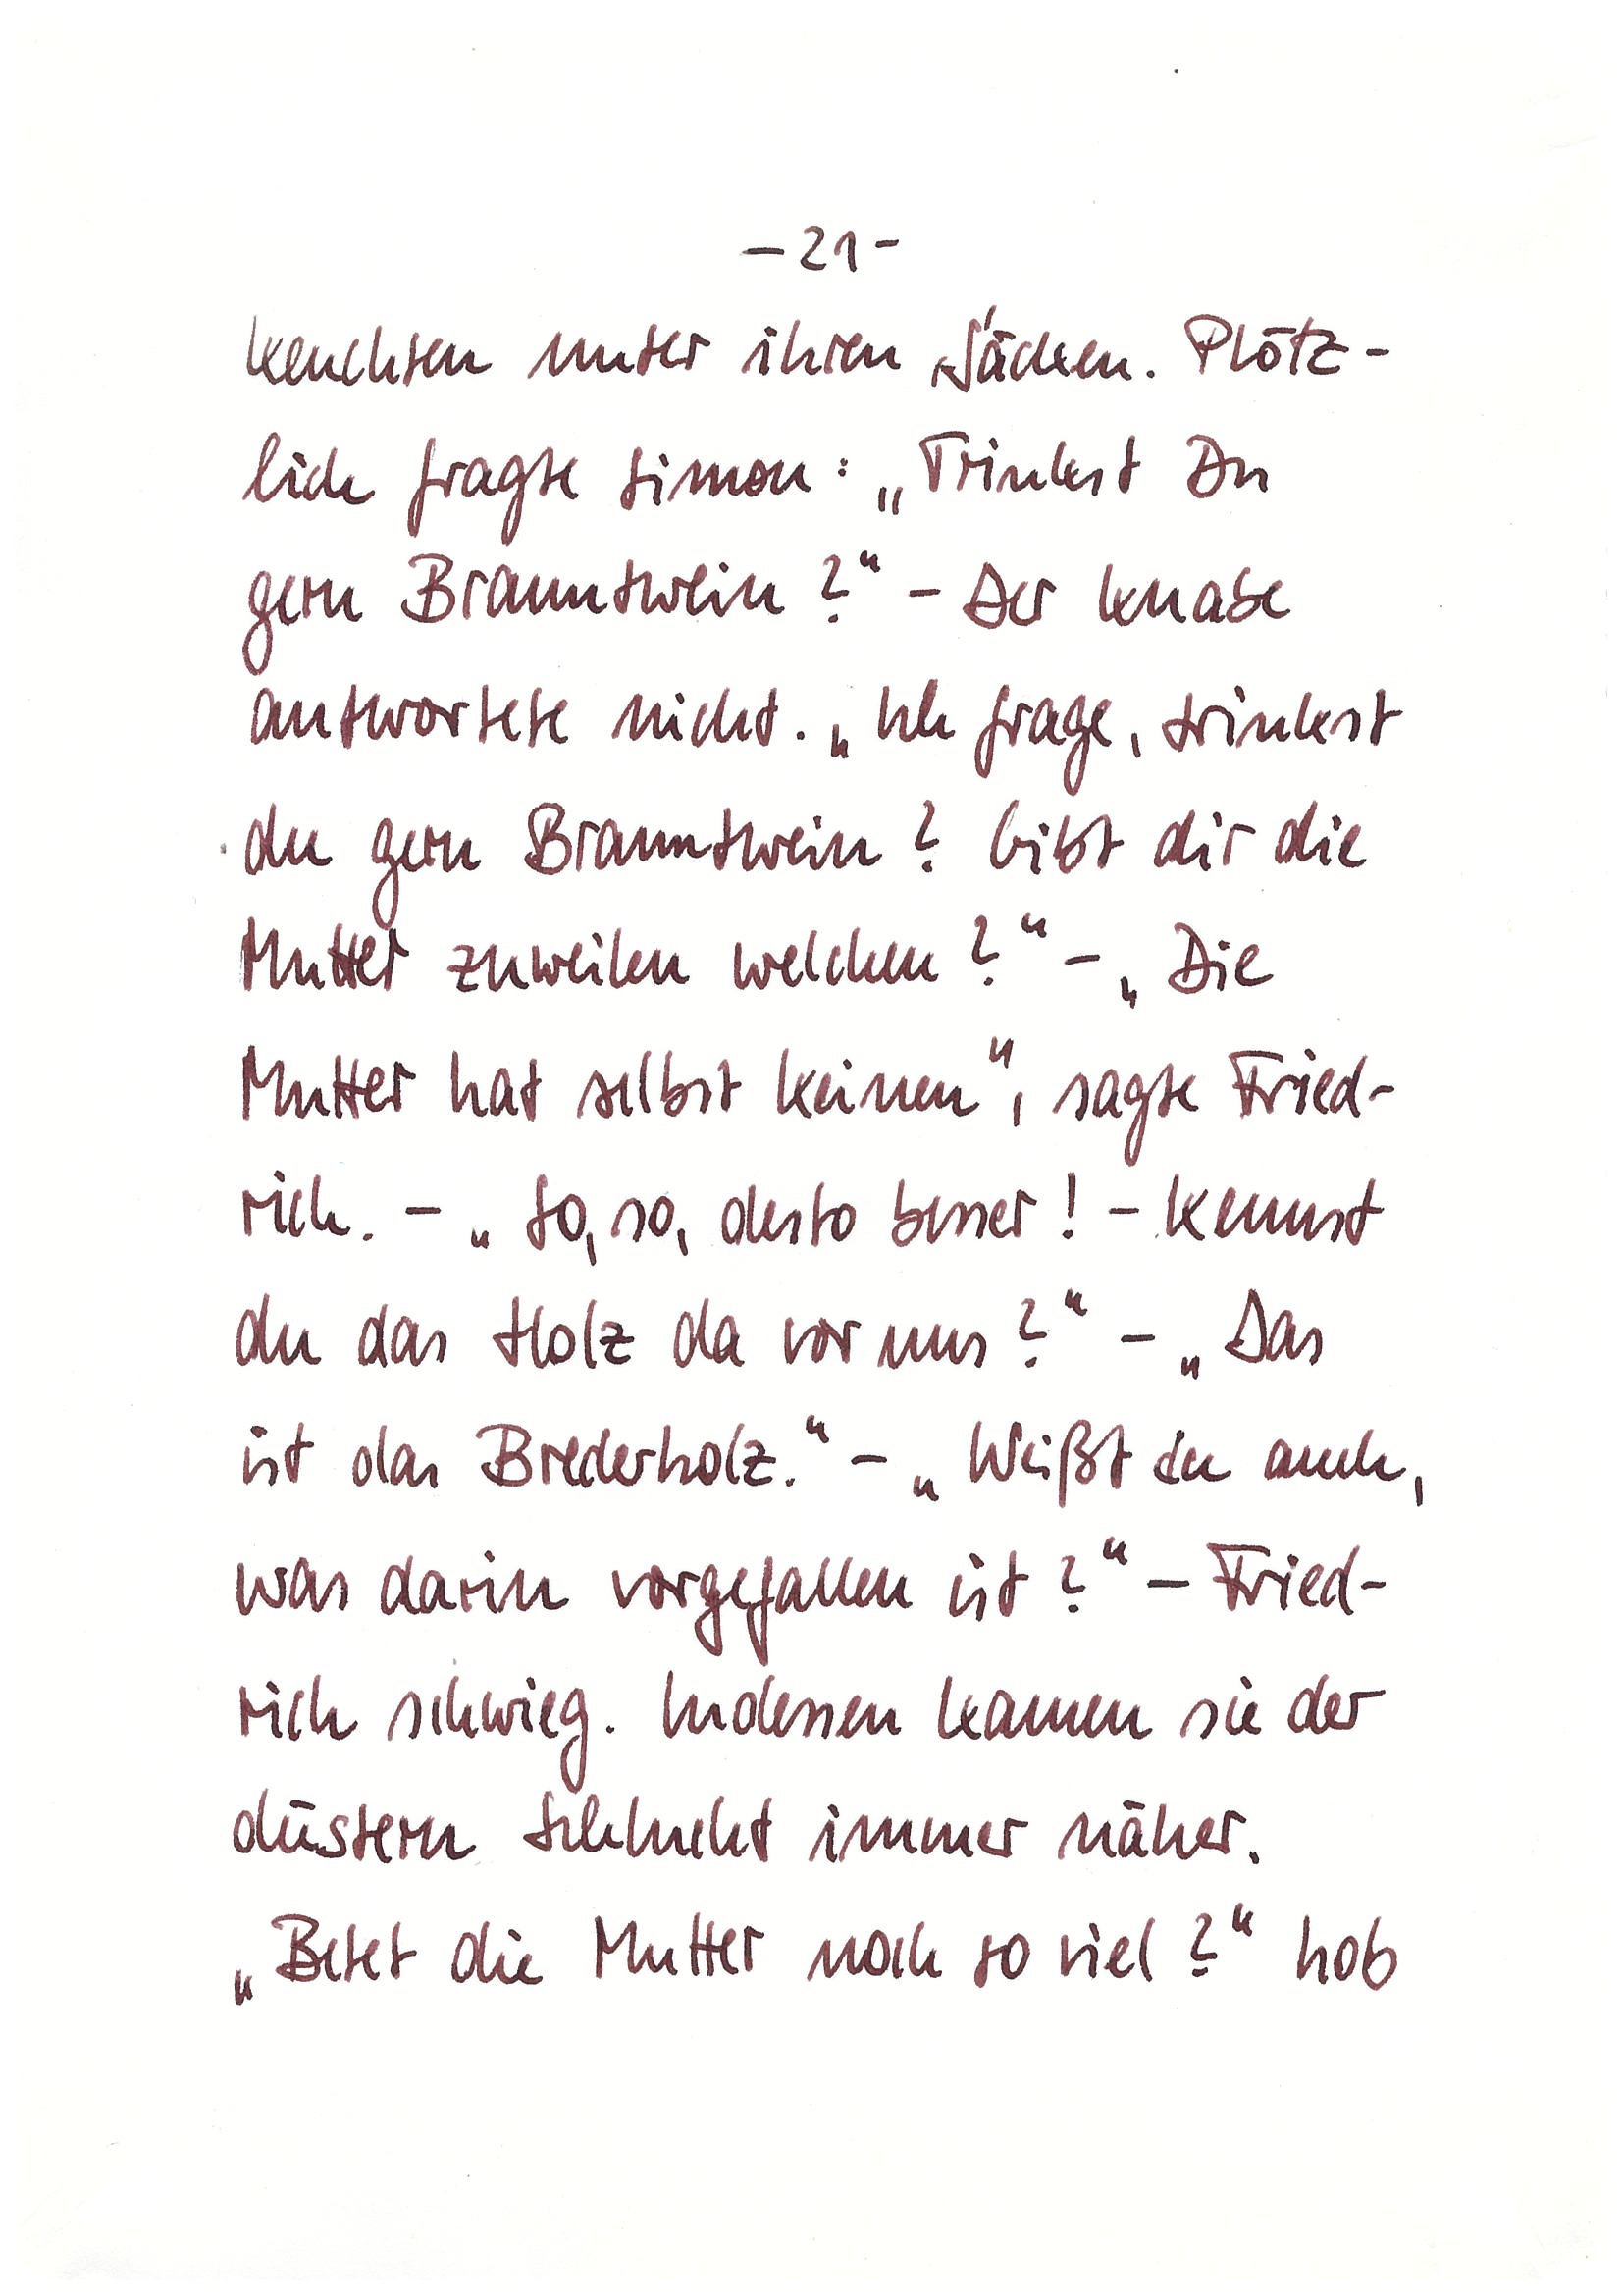 – 21 –
keuchten unter ihren Säcken. Plötz-
lich fragte Simon: „Trinkst Du
gern Branntwein?“ – Der Knabe
antwortete nicht. „Ich frage, trinkst
du gern Branntwein? Gibt dir die
Mutter zuweilen welchen?“ – „Die
Mutter hat selbst keinen“, sagte Fried-
rich. – „So, so, desto besser! – Kennst
du das Holz da vor uns?“ – „Das
ist das Brederholz.“ – „Weißt du auch,
was darin vorgefallen ist?“ – Fried-
rich schwieg. Indessen kamen sie der
düstern Schlucht immer näher.
„Betet die Mutter noch so viel?“ hob